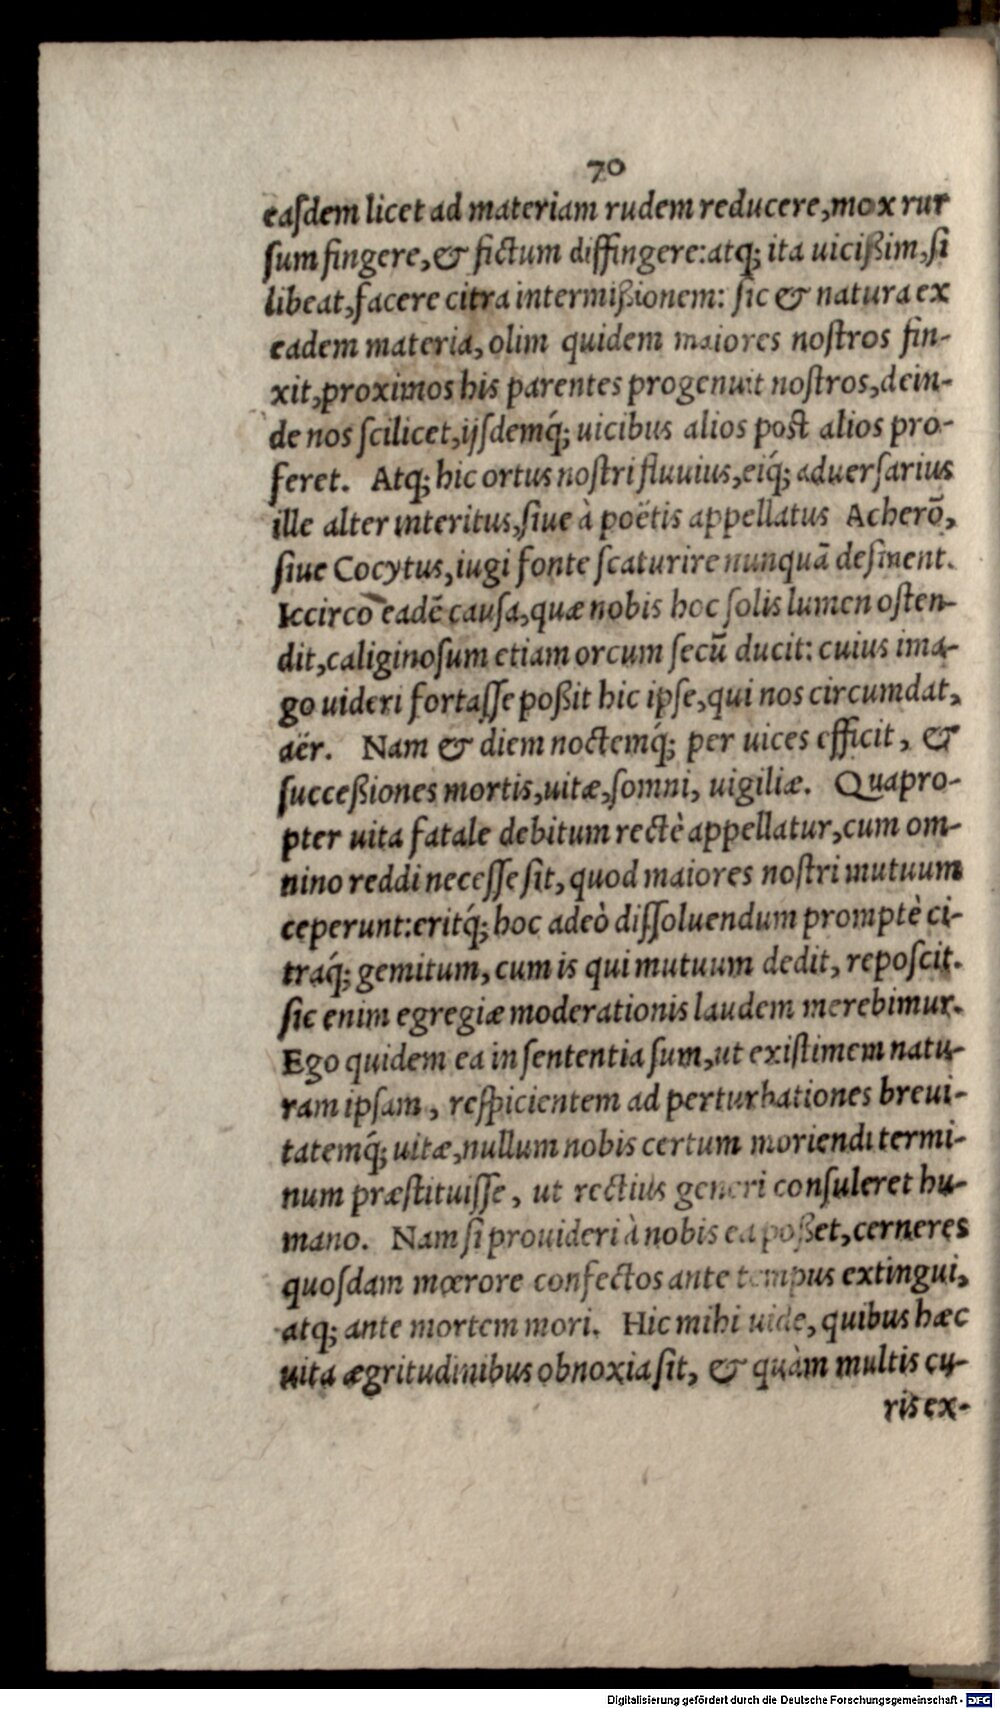 70
eaſdem licet ad materiam rudem reducere, mox rur
ſum fingere, & fictum diffingere: atq; ita uicißim, ſi
libeat, facere citra intermißionem: ſic & natura ex
eadem materia, olim quidem maiores noſtros fin-
xit, proximos his parentes progenuit noſtros, dein-
de nos ſcilicet, ijſdemq́; uicibus alios poſt alios pro-
feret. Atq; hic ortus noſtri fluuius, eiq́; aduerſarius
ille alter interitus, ſiue à poëtis appellatus Acherō,
ſiue Cocytus, iugi fonte ſcaturire nunquā deſinent.
Iccirco eadē cauſa, quæ nobis hoc ſolis lumen oſten-
dit, caliginoſum etiam orcum ſecū ducit: cuius ima-
go uideri fortaſſe poßit hic ipſe, qui nos circumdat,
aër. Nam & diem noctemq́; per uices efficit, &
ſucceßiones mortis, uitæ, ſomni, uigiliæ. Quapro-
pter uita fatale debitum rectè appellatur, cum om-
nino reddi neceſſe ſit, quod maiores noſtri mutuum
ceperunt: eritq́; hoc adeò diſſoluendum promptè ci-
traq́; gemitum, cum is qui mutuum dedit, repoſcit.
ſic enim egregiæ moderationis laudem merebimur.
Ego quidem ea in ſententia ſum, ut exiſtimem natu-
ram ipſam, reſpicientem ad perturbationes breui-
tatemq́; uitæ, nullum nobis certum moriendi termi-
num præſtituiſſe, ut rectius generi conſuleret hu-
mano. Nam ſi prouideri à nobis ea poßet, cerneres
quoſdam mœrore confectos ante tempus extingui,
atq; ante mortem mori. Hic mihi uide, quibus hæc
uita ægritudinibus obnoxia ſit, & quàm multis cu-
ris ex-
Digitalisierung gefördert durch die Deutsche Forschungsgemeinschaft - DFG